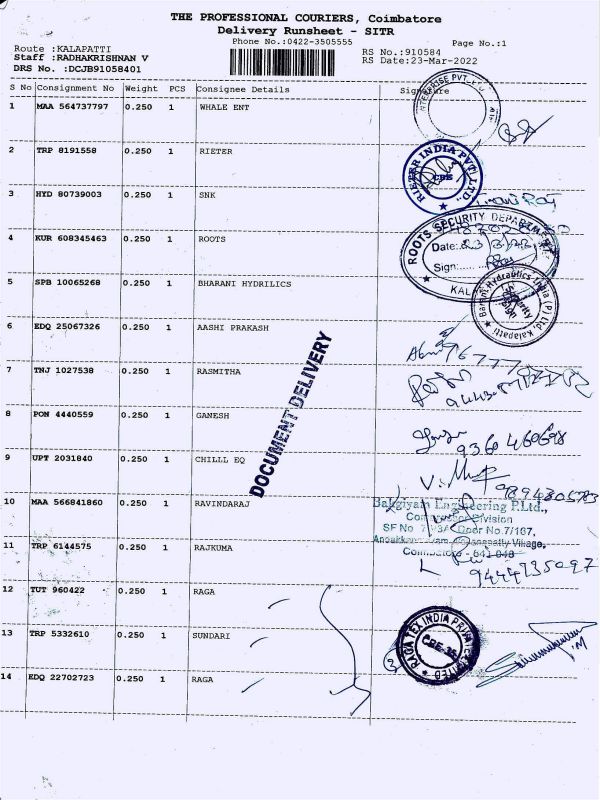 THE PROFESSIONAL COURIERS, Coimbatore
Delivery Runsheet - SITR
Phone No.:0422-3505555
Page No.:1
Route :KALAPATTI
Staff :RADHAKRISHNAN V
DRS No. :DCJB91058401
RS No.:910584
RS Date:23-Mar-2022
S No Consignment No Weight PCS Consignee Details Signature
1 MAA 564737797 0.250 1 WHALE ENT
2 TRP 8191558 0.250 1 RIETER
RIETER INDIA PVT. LTD.,
CBE
3 HYD 80739003 0.250 1 SNK
4 KUR 608345463 0.250 1 ROOTS
ROOTS SECURITY DEPARTMENT
Date:
Sign:
5 SPB 10065268 0.250 1 BHARANI HYDRILICS
Barani Hydraulics India (P) Ltd. Kalapatti
Security
6 EDQ 25067326 0.250 1 AASHI PRAKASH
7 TNJ 1027538 0.250 1 RASMITHA
8 PON 4440559 0.250 1 GANESH
9360460698
DOCUMENT DELIVERY
9 UPT 2031840 0.250 1 CHILLL EQ
9894305783
10 MAA 566841860 0.250 1 RAVINDARAJ
Bakgiyam Engineering P.Ltd.,
Division
SF No Door No.7/167,
Village,
Coimbatore - 641 048
11 TRP 6144575 0.250 1 RAJKUMA
9444735097
12 TUT 960422 0.250 1 RAGA
13 TRP 5332610 0.250 1 SUNDARI
RAGA TEX INDIA PRIVATE LIMITED
CBE-35
3
14 EDQ 22702723 0.250 1 RAGA